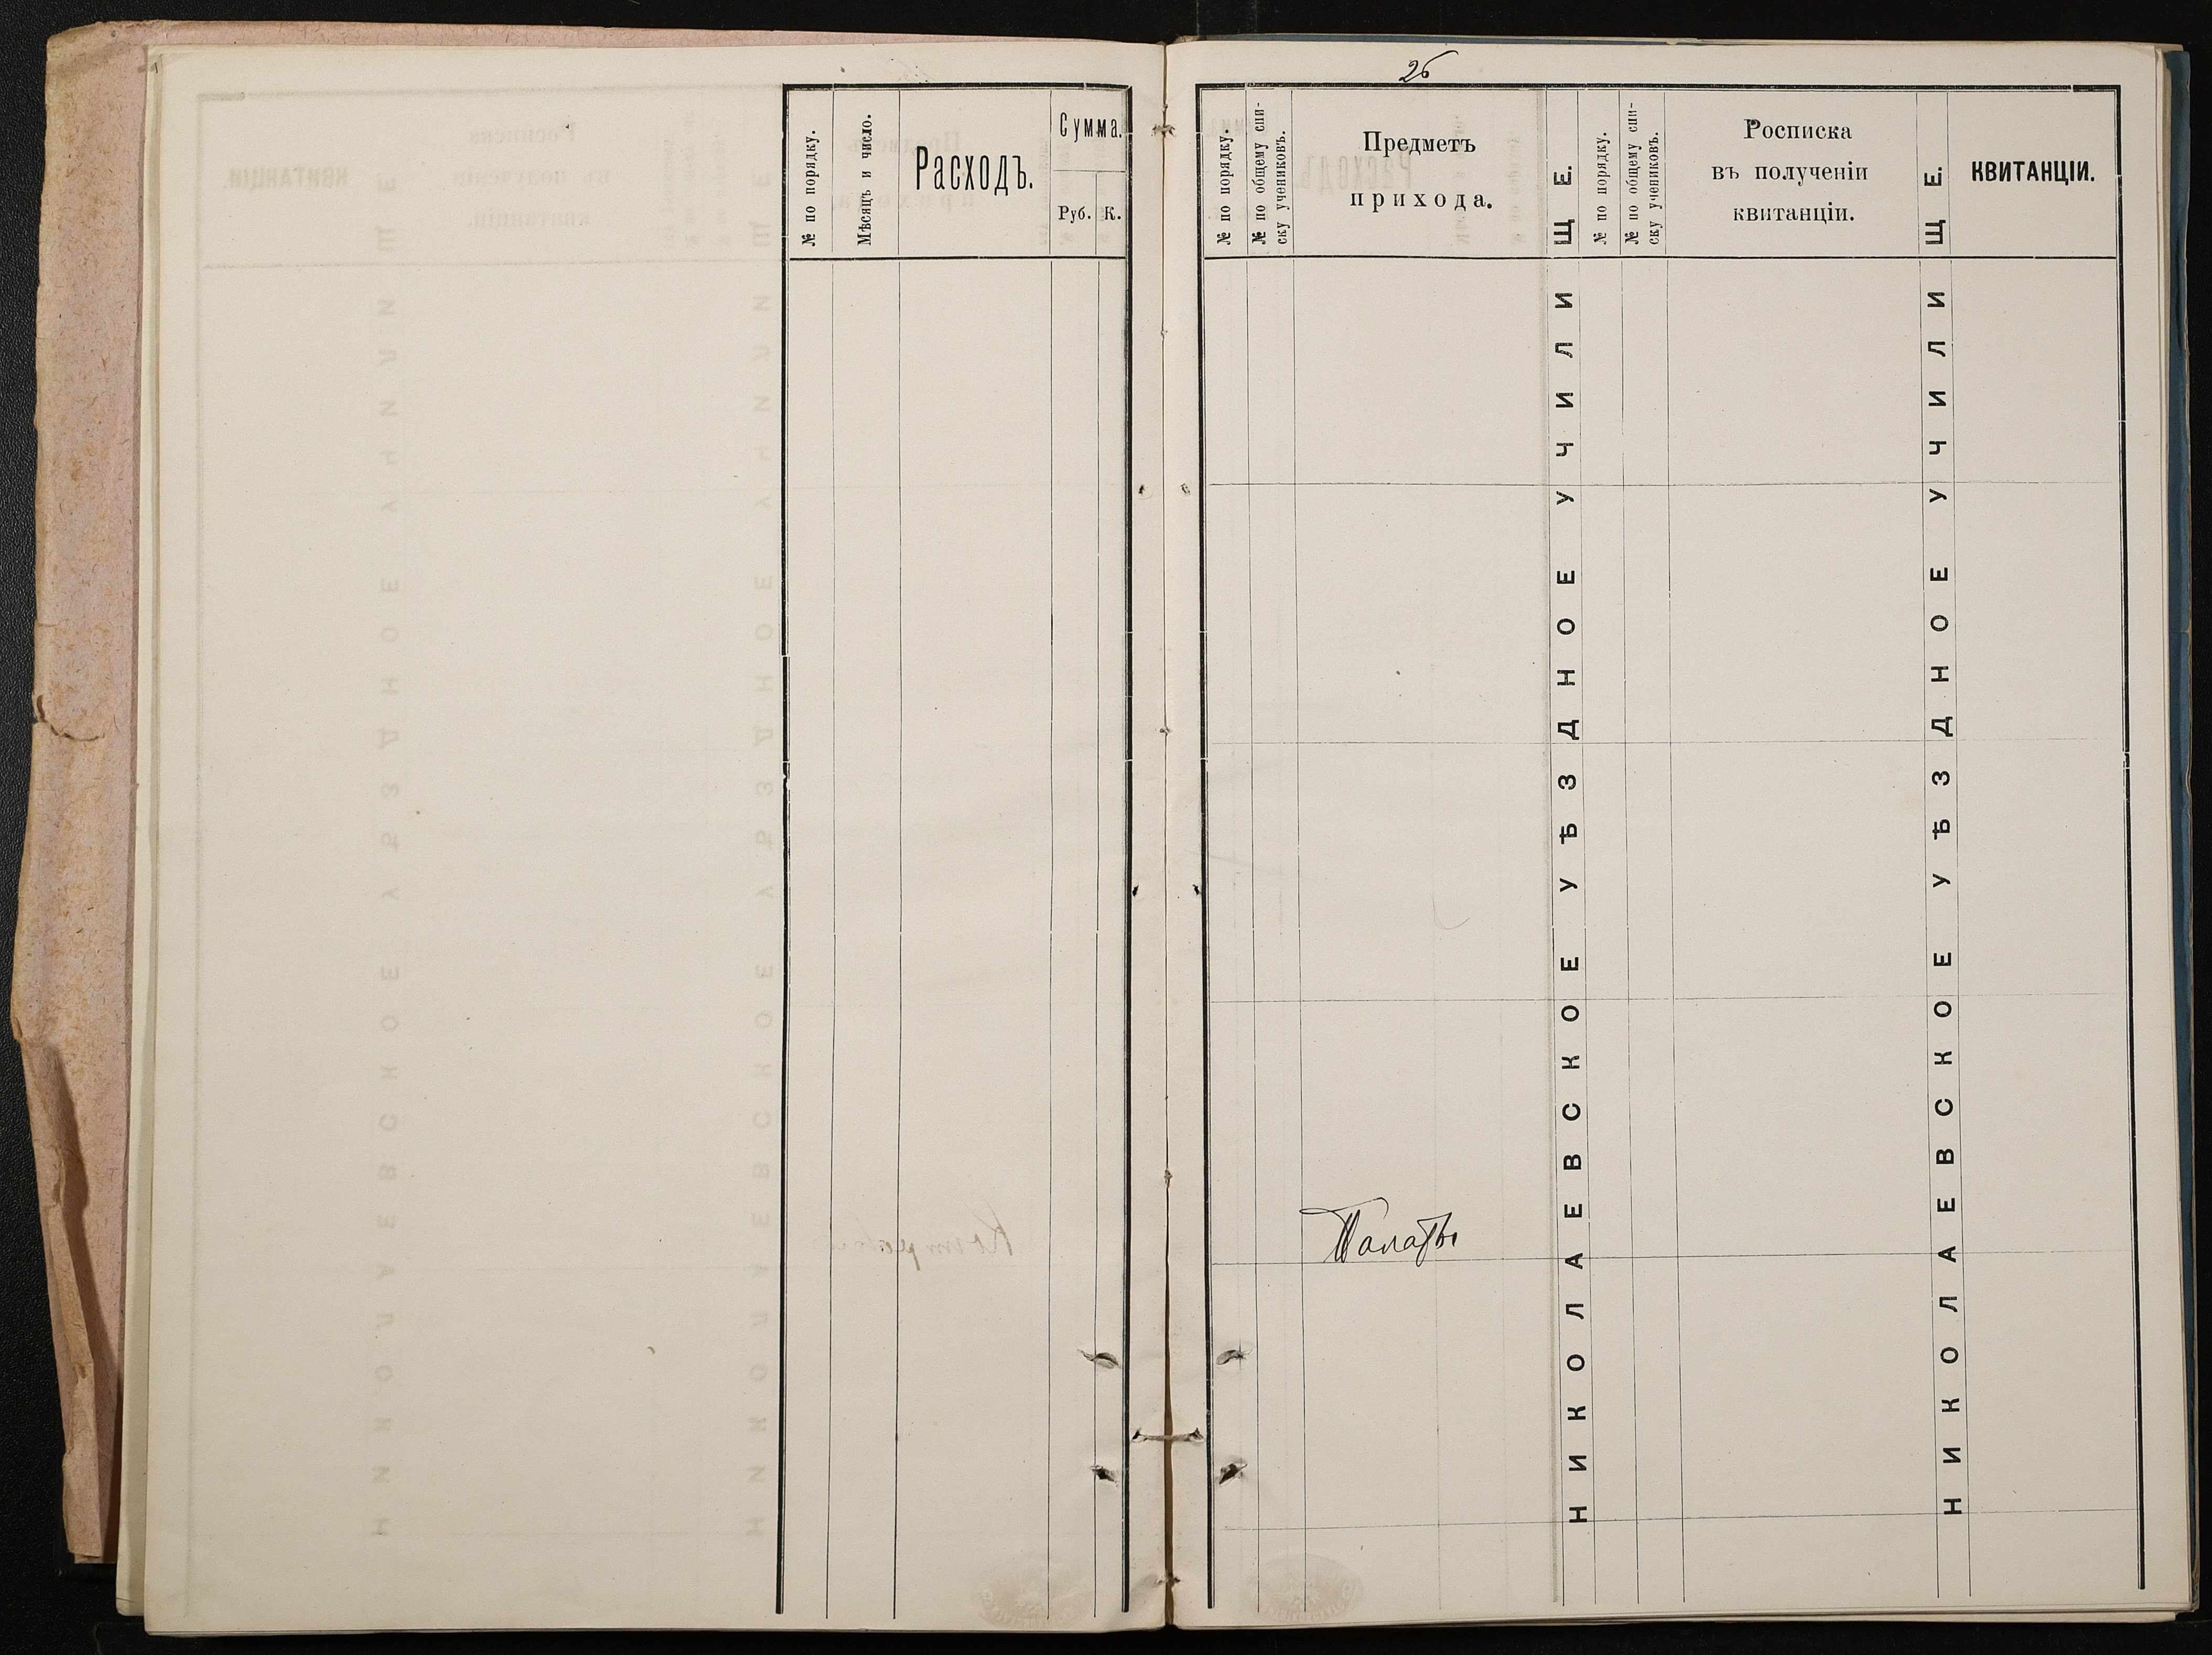 № по порядку.
Мѣсяцъ и число.
Расходъ.
Сумма.
Руб. К.
26
№ по порядку.
№ по общему спи-
ску учениковъ.
Предметъ
прихода.
НИКОЛАЕВСКОЕ УѢЗДНОЕ УЧИЛИЩЕ.
№ по порядку.
№ по общему спи-
ску учениковъ.
Росписка
въ полученіи
квитанціи.
НИКОЛАЕВСКОЕ УѢЗДНОЕ УЧИЛИЩЕ.
КВИТАНЦІИ.
Палаты